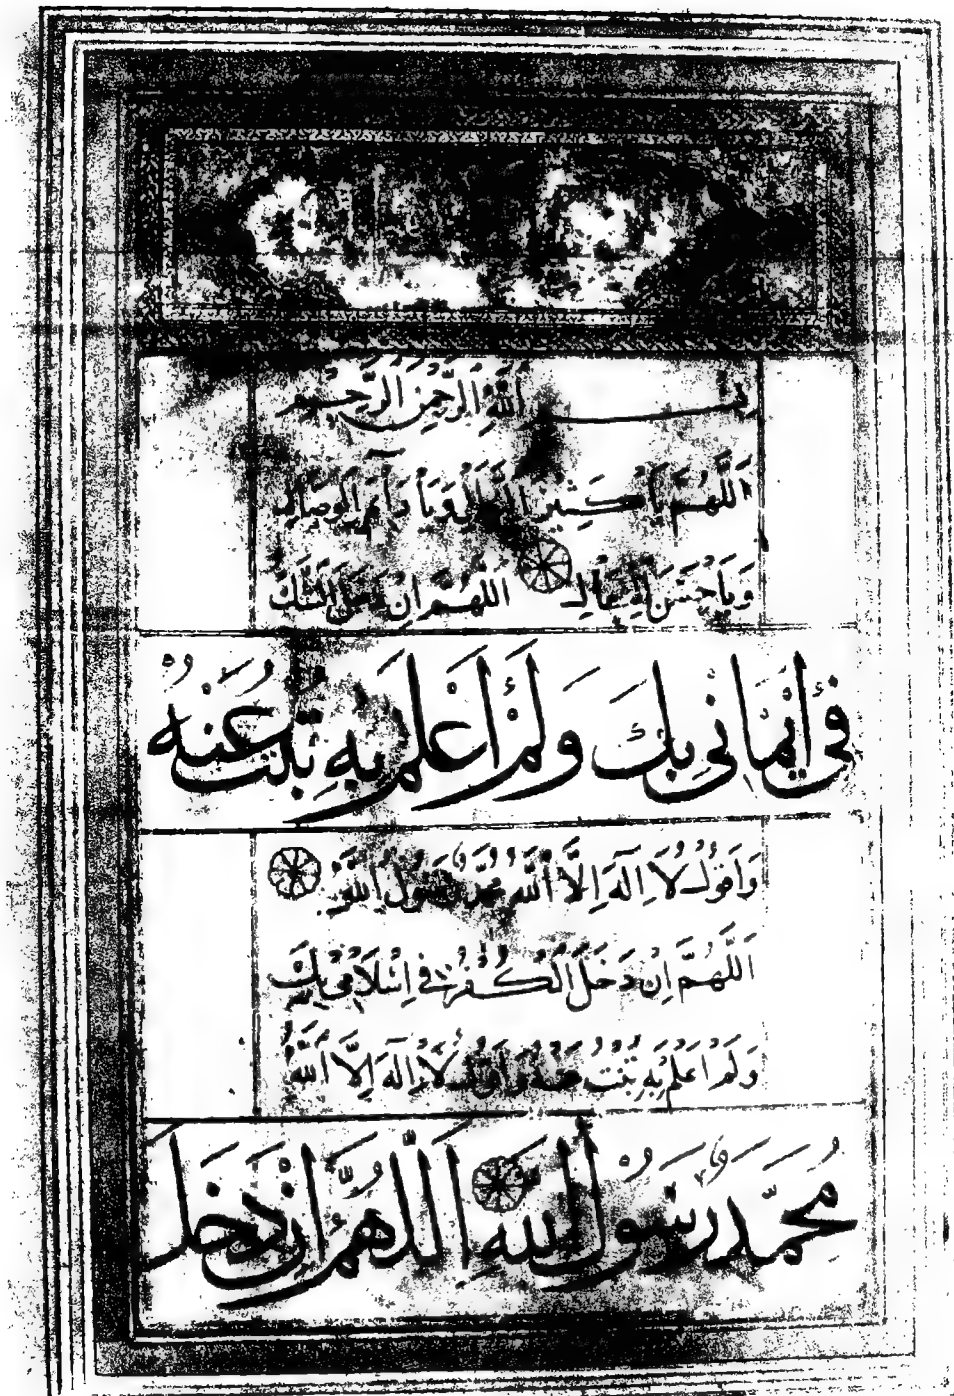 بِسْمِ اللّٰهِ الرَّحْمٰنِ الرَّحِيْمِ
اَللّٰهُمَّ يَا كَثِيْرَ النَّوَالِ وَيَا دَائِمَ الْوِصَالِ
وَيَا حُسْنَ الْفِعَالِ اَللّٰهُمَّ اِنْ دَخَلَ الشَّكُّ
فِيْ اِيْمَانِيْ بِكَ وَلَمْ اَعْلَمْ بِهٖ تُبْتُ عَنْهُ
وَاَقُوْلُ لَا اِلٰهَ اِلَّا اللّٰهُ مُحَمَّدٌ رَسُوْلُ اللّٰهِ
اَللّٰهُمَّ اِنْ دَخَلَ الْكُفْرُ فِيْ اِسْلَامِيْ بِكَ
وَلَمْ اَعْلَمْ بِهٖ تُبْتُ عَنْهُ وَاَقُوْلُ لَا اِلٰهَ اِلَّا اللّٰهُ
مُحَمَّدٌ رَسُوْلُ اللّٰهِ اَللّٰهُمَّ اِنْ دَخَلَ